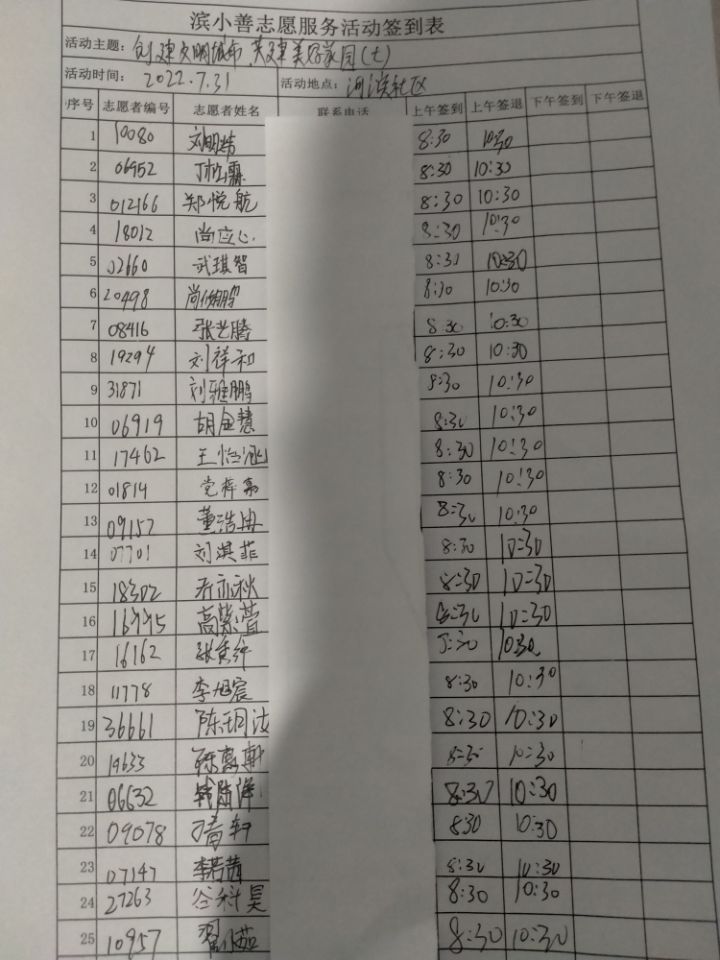 滨小善志愿服务活动签到表
活动主题: 创建文明城市,共建美好家园(七)
活动时间: 2022.7.31 活动地点: 社区
序号 志愿者编号 志愿者姓名 联系电话 上午签到 上午签退 下午签到 下午签退
1 10080 刘明 8:30 10:30
2 06952 丁 8:30 10:30
3 012166 郑悦航 8:30 10:30
4 18012 尚应心 8:30 10:30
5 02660 武琪智 8:30 10:30
6 20498 尚 8:30 10:30
7 08416 张艺腾 8:30 10:30
8 19294 刘祥和 8:30 10:30
9 31871 刘雅鹏 8:30 10:30
10 06919 胡金慧 8:30 10:30
11 17462 王怡涵 8:30 10:30
12 01814 党梓 8:30 10:30
13 09152 董浩冉 8:30 10:30
14 07701 刘淇菲 8:30 10:30
15 18302 亦秋 8:30 10:30
16 高紫萱 8:30 10:30
17 16162 张 10:30
18 11778 李旭宸 8:30 10:30
19 36661 陈玥汝 8:30 10:30
20 19633 8:30 10:30
21 06632 8:30 10:30
22 09078 轩 830 10:30
23 07147 李若茜 8:30 10:30
24 27263 谷科昊 8:30 10:30
25 10957 茹 8:30 10:30